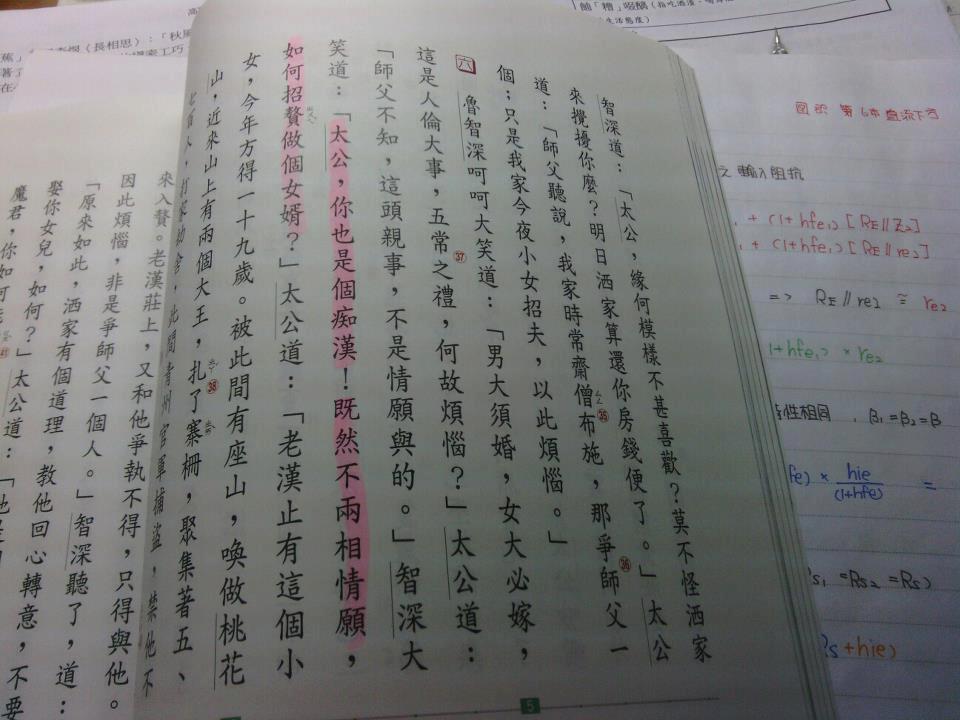 智深道：「太公，緣何模樣不甚喜歡？莫不怪洒家
來攪擾你麼？明日洒家算還你房錢便了。」太公
道：「師父聽說，我家時常齋僧布施，那爭師父一
個；只是我家今夜小女招夫，以此煩惱。」
六
魯智深呵呵大笑道：「男大須婚，女大必嫁，
這是人倫大事，五常之禮，何故煩惱？」太公道：
「師父不知，這頭親事，不是情願與的。」智深大
笑道：「太公，你也是個痴漢！既然不兩相情願，
如何招贅做個女婿？」太公道：「老漢止有這個小
女，今年方得一十九歲。被此間有座山，喚做桃花
山，近來山上有兩個大王，扎了寨柵，聚集著五、
七百人，打家劫舍，此間青州官軍捕盜，禁他不
來入贅。老漢莊上，又和他爭執不得，只得與他。
因此煩惱，非是爭師父一個人。」智深聽了，道：
「原來如此，洒家有個道理，教他回心轉意，不要
娶你女兒，如何？」太公道：「他是
魔君，你如何
35
36
37
38
5
〈長相思〉：「秋
餔「糟」啜醨
生活態度）
第6本
之輸入阻抗
+ (1+hfe₁)[RE//Z₂]
+ (1+hfe₁)[RE//re₂]
=> RE//re₂ ≅ re₂
1+hfe₁) × re₂
性相同，β₁=β₂=β
fe) × hie/(1+hfe) =
s₁ = Rs₂ = Rs)
Rs+hie)